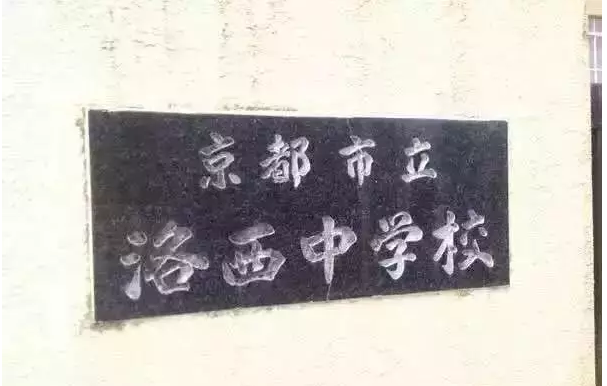 京都市立
洛西中学校